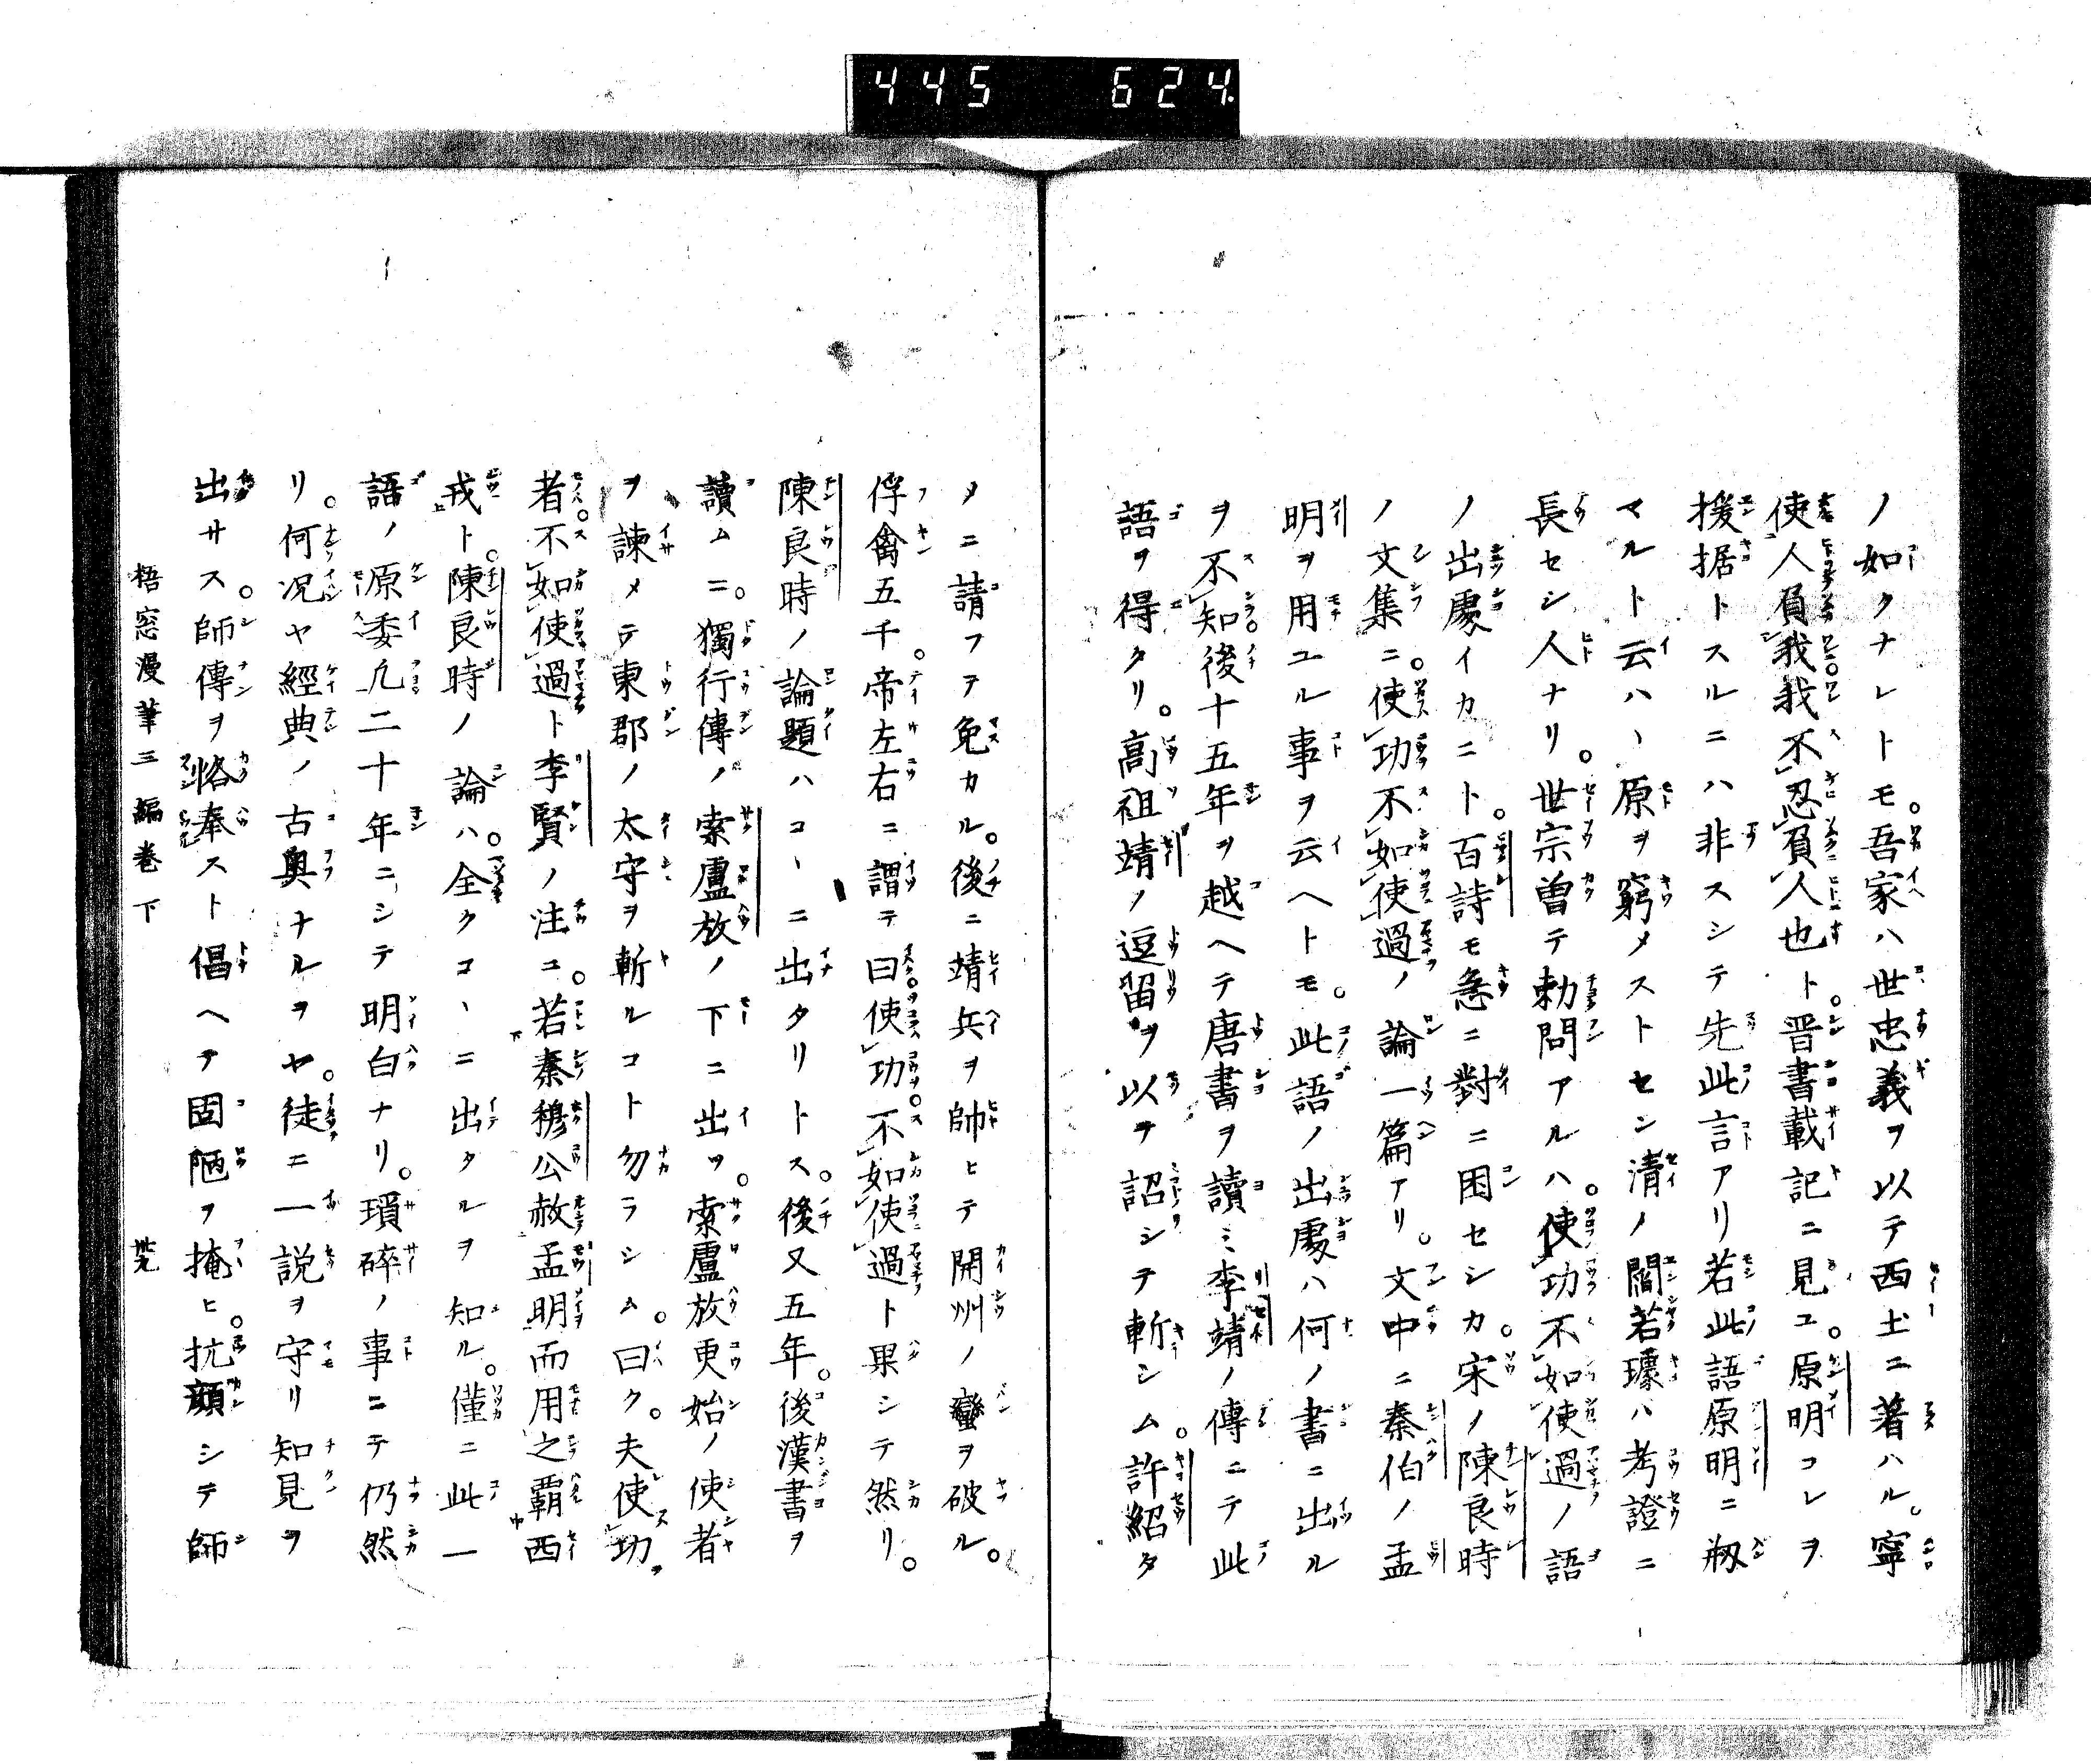 445 624
ノ如クナレトモ。吾家ハ世忠義ヲ以テ西土ニ著ハル。寧
使人負我我不忍負人也ト。晋書載記ニ見ユ。原明コレヲ
援据トスルニハ非スシテ先此言アリ若此語原明ニ剏
マルト云ハヽ原ヲ窮メストセン清ノ閻若璩ハ考證ニ
長セシ人ナリ。世宗曽テ勅問アルハ。使功不如使過ノ語
ノ出處イカニト。百詩モ急ニ對ニ困セシカ。宋ノ陳良時
ノ文集ニ。使功不如使過ノ論一篇アリ。文中ニ秦伯ノ孟
明ヲ用ユル事ヲ云ヘトモ。此語ノ出處ハ何ノ書ニ出ル
ヲ不知後十五年ヲ越ヘテ唐書ヲ讀ミ李靖ノ傳ニテ此
語ヲ得タリ。高祖靖ノ逗留ヲ以テ詔シテ斬シム。許紹タ
メニ請フヲ免カル。後ニ靖兵ヲ帥ヒテ開州ノ蠻ヲ破ル。
俘禽五千。帝左右ニ謂テ曰使功不如使過ト果シテ然リ。
陳良時ノ論題ハコヽニ出タリトス。後又五年。後漢書ヲ
讀ムニ。獨行傳ノ索盧放ノ下ニ出ツ。索盧放更始ノ使者
ヲ諫メテ東郡ノ太守ヲ斬ルコト勿ラシム。曰ク。夫使功
者。不如使過ト李賢ノ注ニ。若秦穆公赦孟明而用之霸西
戎ト。陳良時ノ論ハ。全クコヽニ出タルヲ知ル。僅ニ此一
語ノ原委凢二十年ニシテ明白ナリ。瑣碎ノ事ニテ仍然
リ。何况ヤ經典ノ古奥ナルヲヤ。徒ニ一説ヲ守リ知見ヲ
出サス。師傳ヲ恪奉スト倡ヘテ固陋ヲ掩ヒ。抗顔シテ師
梧窓漫筆三編巻下 丗九